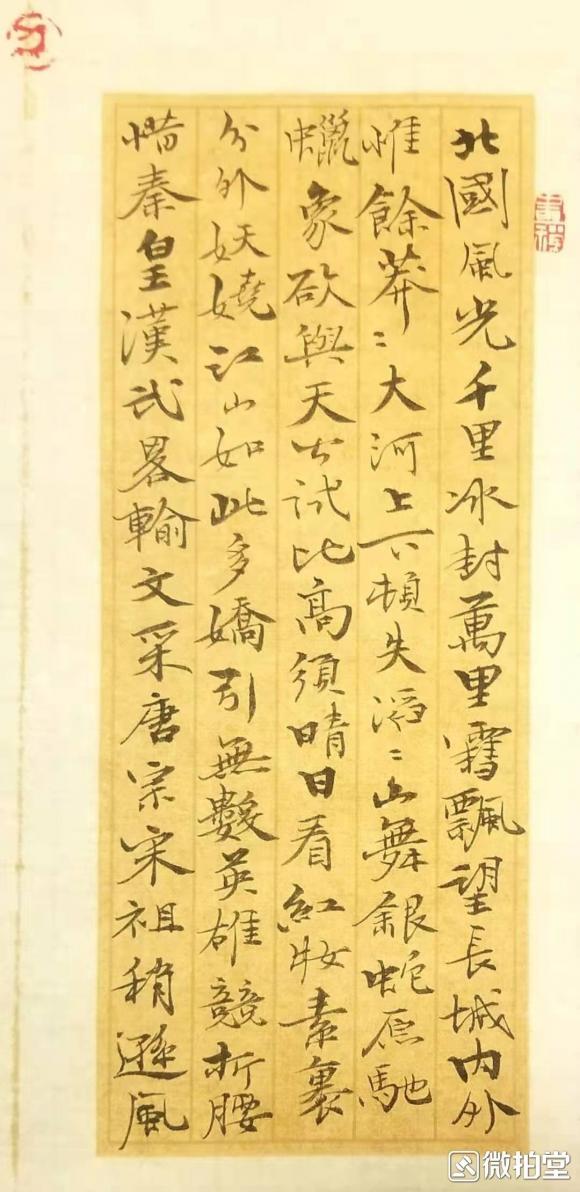 北國風光千里冰封萬里雪飄望長城内外
惟餘莽〻大河上下頓失滔〻山舞銀蛇原馳
蠟象欲與天公試比高須晴日看紅妝素裹
分外妖嬈江山如此多嬌引無數英雄競折腰
惜秦皇漢武畧輸文采唐宗宋祖稍遜風
微拍堂